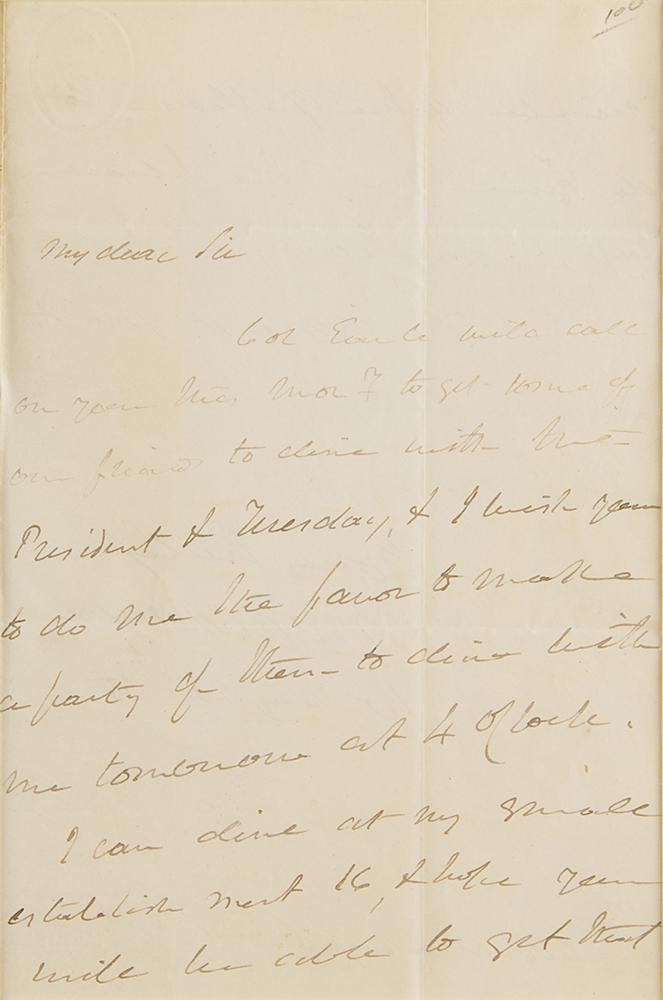 100
My dear Sir
Col Earle will call
on you this Mor g to get some of
our friends to dine with the
President & Tuesday, & I wish you
to do me the favor to make
a party of them to dine with
me tomorrow at 4 O'Clock.
I can dine at my small
establishment 16, & hope you
will be able to get that